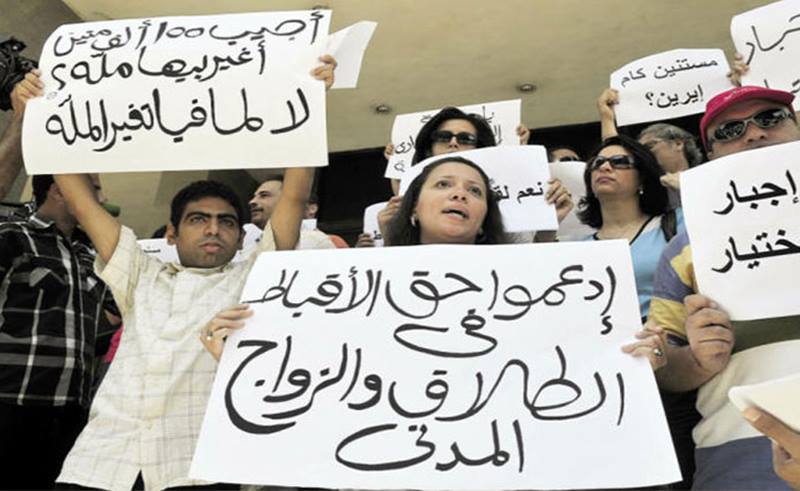 أجيب ١٠٠ ألف منين
أغير بيها مله؟
لا لمافيا تغير الملّه
مستنين كام
إيرين؟
نعم
إجبار
ختيار
إدعموا حق الأقباط
فى
الطلاق والزواج
المدنى